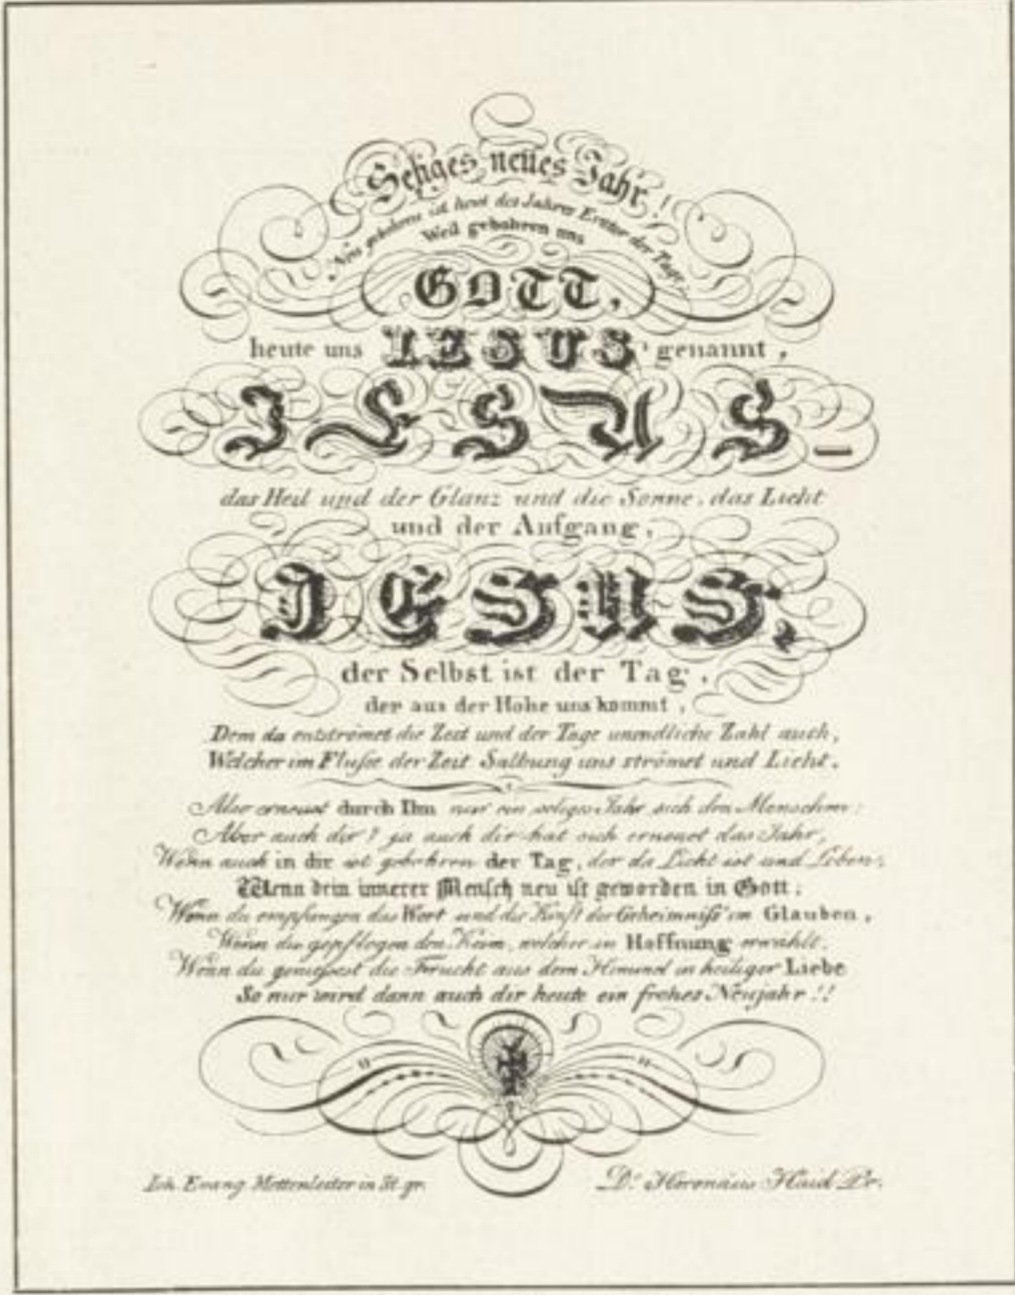 Seliges neues Jahr!
Neu gebohren ist heut des Jahres Erster der Tage,
Weil gebohren uns
GOTT,
heute uns IESUS genannt,
JESUS—
das Heil und der Glanz und die Sonne, das Licht
und der Aufgang,
JESUS,
der Selbst ist der Tag,
der aus der Höhe uns kommt,
Dem da entströmet die Zeit und der Tage unendliche Zahl auch,
Welcher im Fluße der Zeit Salbung uns strömet und Licht.
Also erneuet durch Ihn nur ein seliges Jahr sich den Menschen:
Aber auch dir? ja auch dir hat sich erneuet das Jahr,
Wenn auch in dir ist gebohren der Tag, der da Licht ist und Leben,
Wenn dein innerer Mensch neu ist geworden in Gott;
Wenn du empfangen das Wort und die Kraft der Geheimniß' im Glauben,
Wenn du gepflogen den Keim, welcher in Hoffnung erwählt,
Wenn du genießest die Frucht aus dem Himmel in heiliger Liebe
So nur wird dann auch dir heute ein frohes Neujahr!!
Joh. Evang. Mettenleiter in St. gr.
Dr. Heronäus Haid Pr.